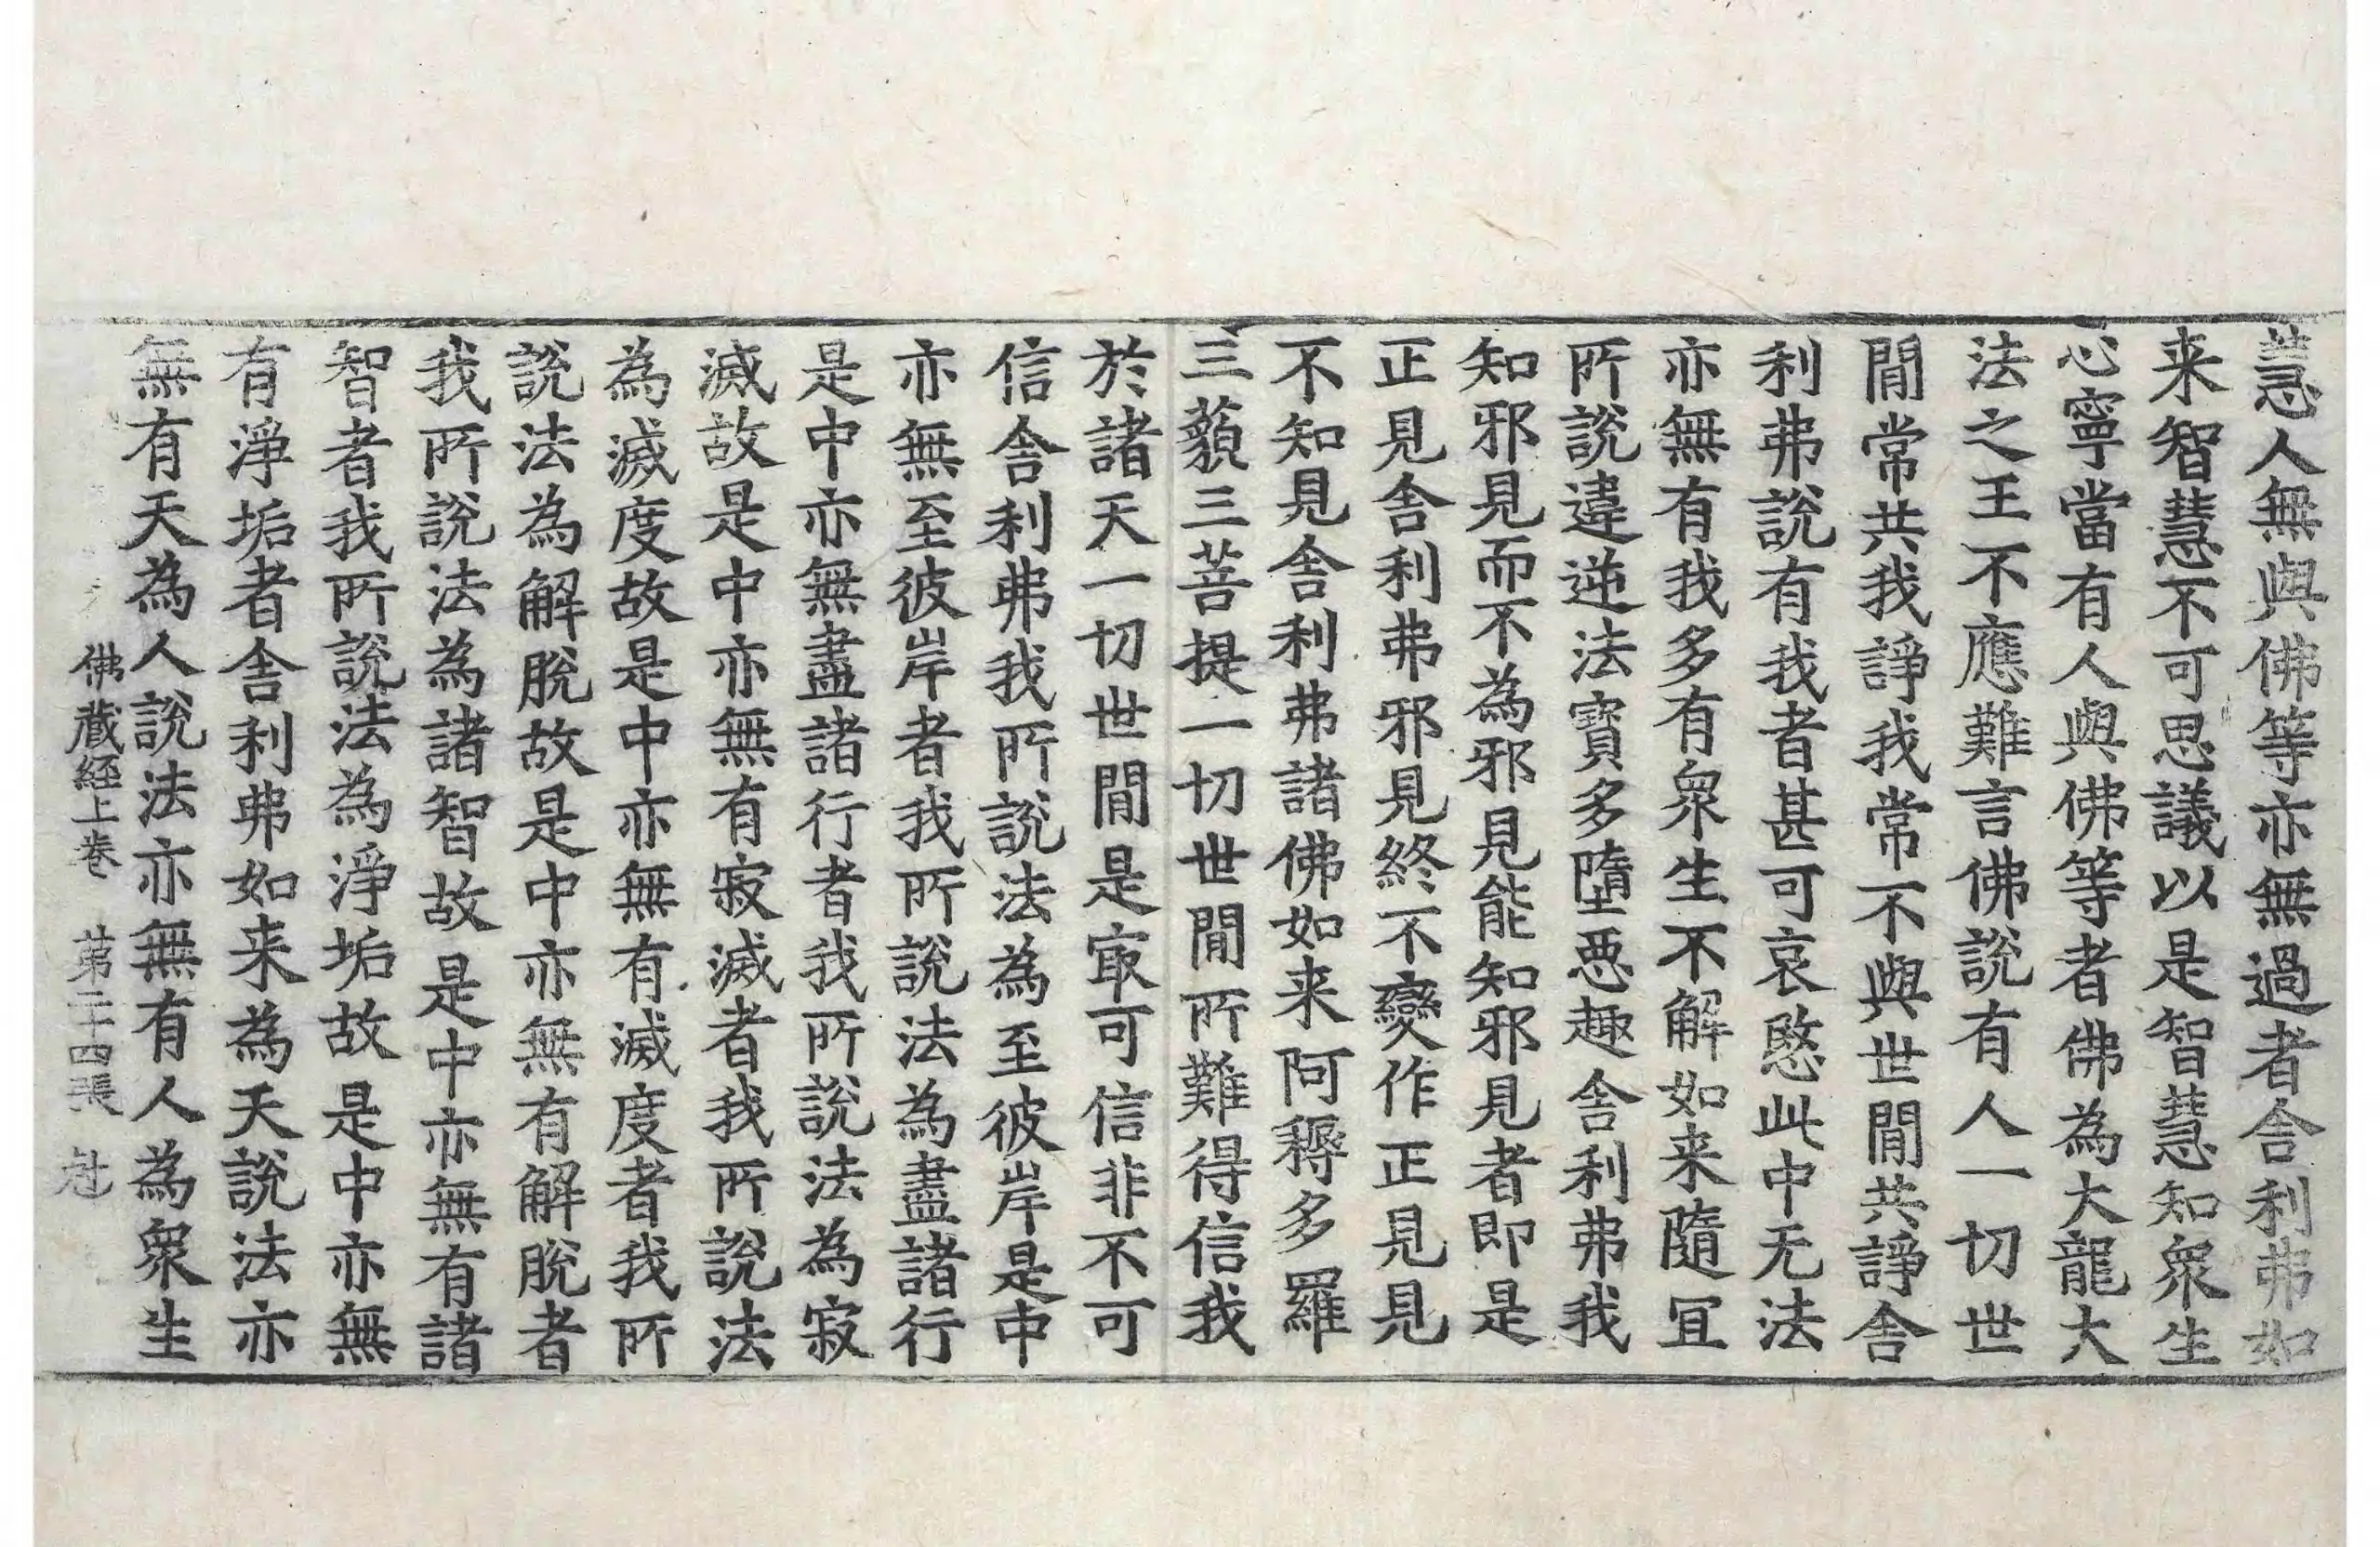 慧人無與佛等亦無過者舍利弗如
来智慧不可思議以是智慧知衆生
心寧當有人與佛等者佛為大龍大
法之王不應難言佛說有人一切世
閒常共我諍我常不與世閒共諍舍
利弗說有我者甚可哀愍此中无法
亦無有我多有衆生不解如来隨冝
所說違逆法寶多墮惡趣舍利弗我
知邪見而不為邪見能知邪見者即是
正見舍利弗邪見終不變作正見見
不知見舍利弗諸佛如来阿耨多羅
三藐三菩提一切世閒所難得信我
於諸天一切世閒是冣可信非不可
信舍利弗我所說法為至彼岸是中
亦無至彼岸者我所說法為盡諸行
是中亦無盡諸行者我所說法為寂
滅故是中亦無有寂滅者我所說法
為滅度故是中亦無有滅度者我所
說法為解脫故是中亦無有解脫者
我所說法為諸智故是中亦無有諸
智者我所說法為淨垢故是中亦無
有淨垢者舍利弗如来為天說法亦
無有天為人說法亦無有人為衆生
佛藏經上卷 苐二十四張